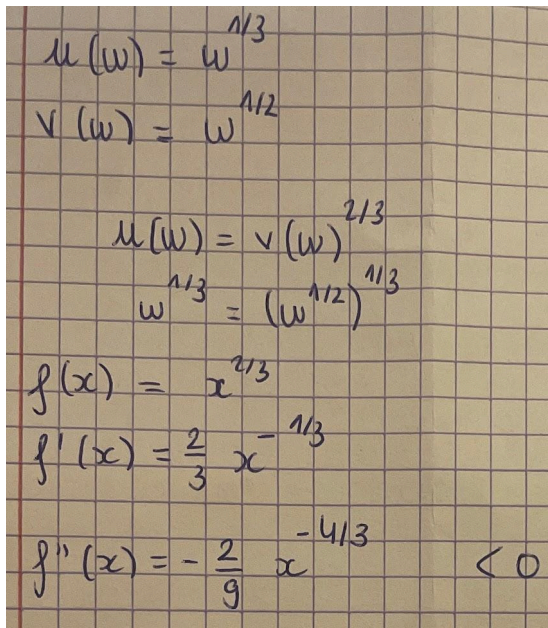 u(w) = w^1/3
v(w) = w^1/2
u(w) = v(w)^2/3
w^1/3 = (w^1/2)^1/3
f(x) = x^2/3
f'(x) = 2/3 x^-1/3
f''(x) = - 2/9 x^-4/3 < 0